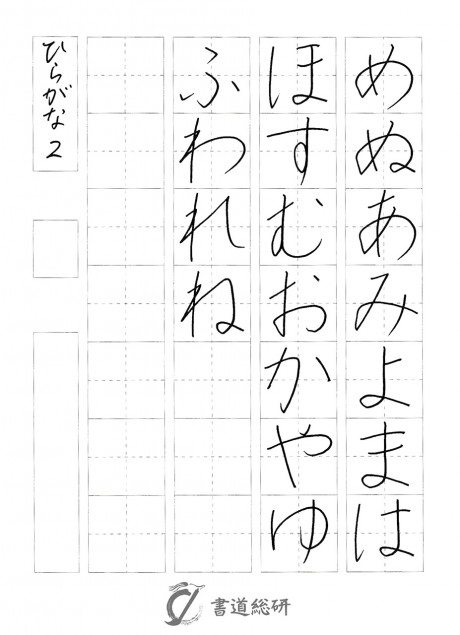 めぬあみよまは
ほすむおかやゆ
ふわれね
ひらがな2
書道総研